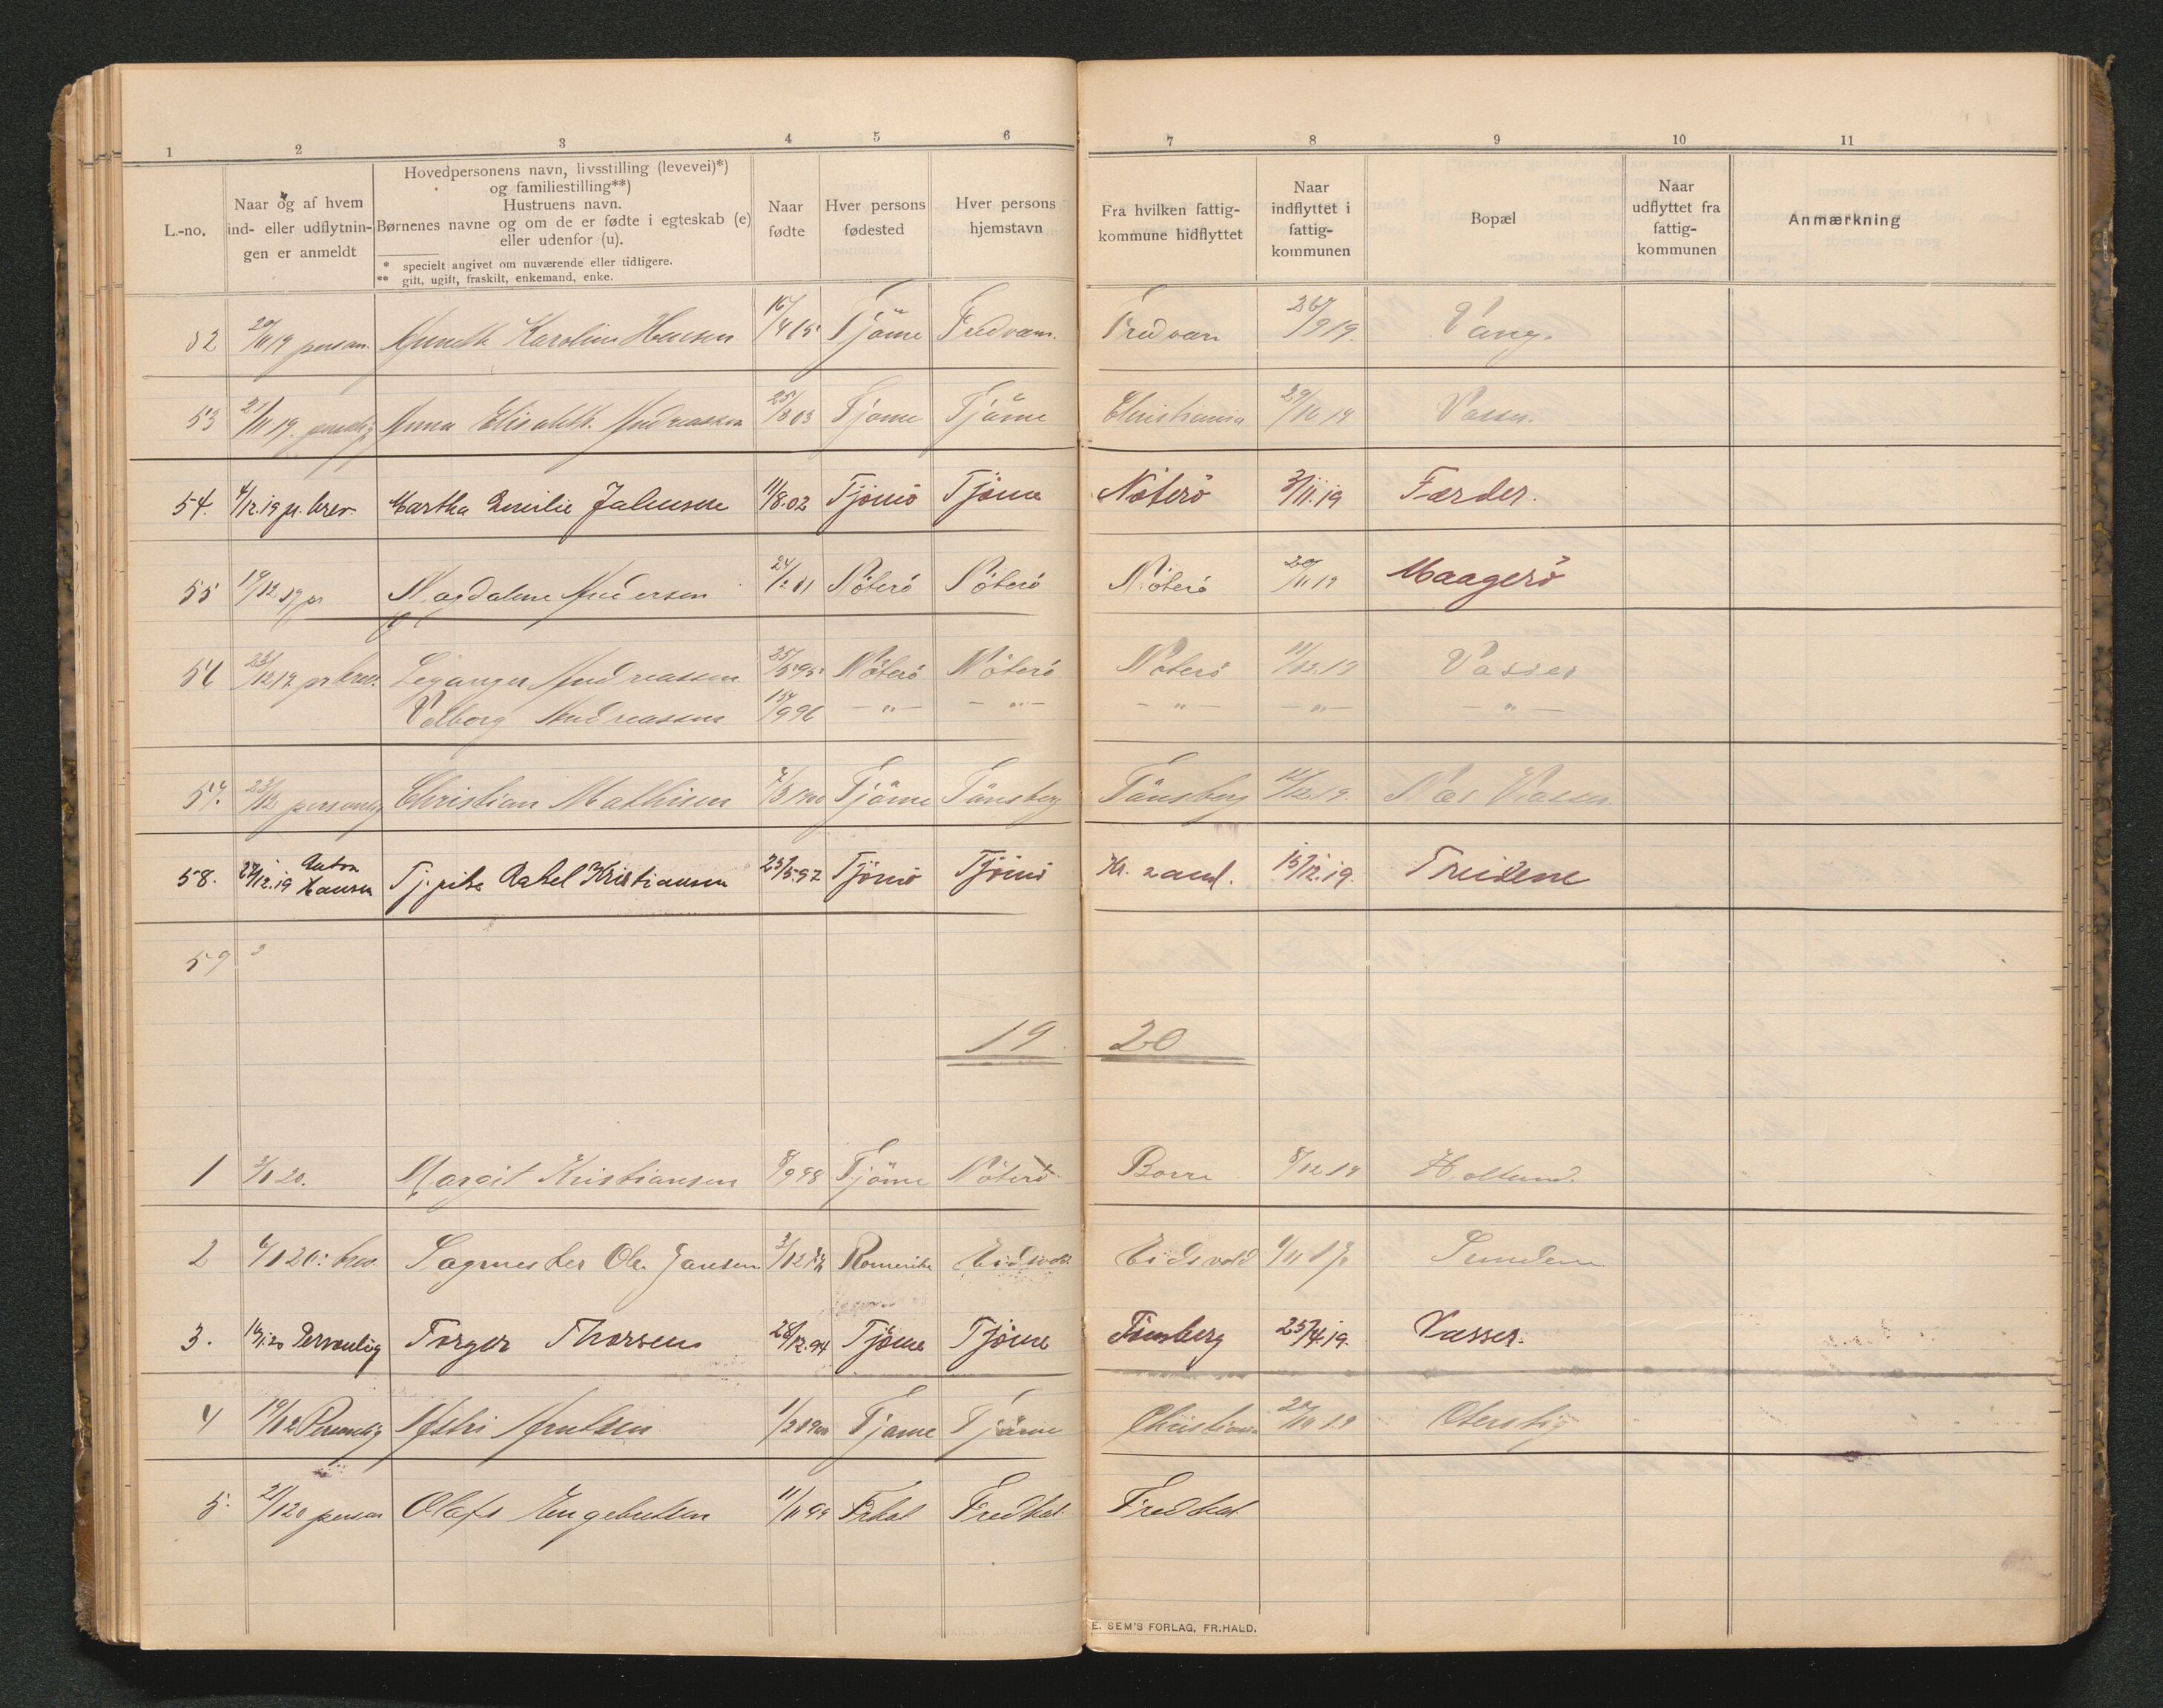 1 2 3 4 5 6 7 8 9 10 11
L.-no.
Naar og af hvem
ind- eller udflytnin-
gen er anmeldt
Hovedpersonens navn, livsstilling (levevei)*)
og familiestilling**)
Hustruens navn.
Børnenes navne og om de er fødte i egteskab (e)
eller udenfor (u).
* specielt angivet om nuværende eller tidligere.
** gift, ugift, fraskilt, enkemand, enke.
Naar
fødte
Hver persons
fødested
Hver persons
hjemstavn
Fra hvilken fattig-
kommune hidflyttet
Naar
indflyttet i
fattig-
kommunen
Bopæl
Naar
udflyttet fra
fattig-
kommunen
Anmærkning
52 20/11 19 person. Karoline Hansen Tjöme Fredvarn. Fredvarn 26/9 19. Vang.
53 21/11 19. Anna Elisabeth Andreassen 25/8 03 Tjøme Tjöme Christiania 29/10 19 Vasser.
54. 4/12.19 pr. brev. Martha Emilie Jahnsen 11/8.02 Tjömö Tjöme Nöterö 3/11.19 Færder.
55 19/12 19 pr Magdalene Andersen Nöterö Nöterö Nöterö 20/11 19 Maagerö
56 23/12 19 pr brev. Andreassen 25/5 95 Nöterö Nöterö Nöterö 11/12 19 Vasser
Valborg Andreassen 15/9 96 — „ — — „ — — „ — — „ — — „ —
57. 23/12 personlig Christian Mathisen 7/3 1900 Tjöme Tönsberg Tönsberg 12/12 19. Næs Vasser.
58. 27/12.19 Anton Hansen Tj. pike Rakel Kristiansen 23/5.97 Tjömö Tjömö Kr. sand. 15/12.19. Treidene
59
19 20
1 3/1 20. Margit Kristiansen 8/9 98 Tjöme Nöterö Borre 8/12 19 Hollund.
2 6/1 20: brev. Sagmester Ole Jansen Romerike Eidsvold Eidsvold Sundene
3. 16/1.20 Personlig Torger Thorsen 28/12.94 Tjöme Tjöme Tönsberg 25/4.19. Vasser.
4 19/12 Personlig Astri 1/2 1900 Tjøme Tjöme Christiania 20/10 19
5. 21/1 20 person Olaf Engebretsen 11/11 99 Frhal Fredhal. Fredhal
E. SEM'S FORLAG, FR.HALD.